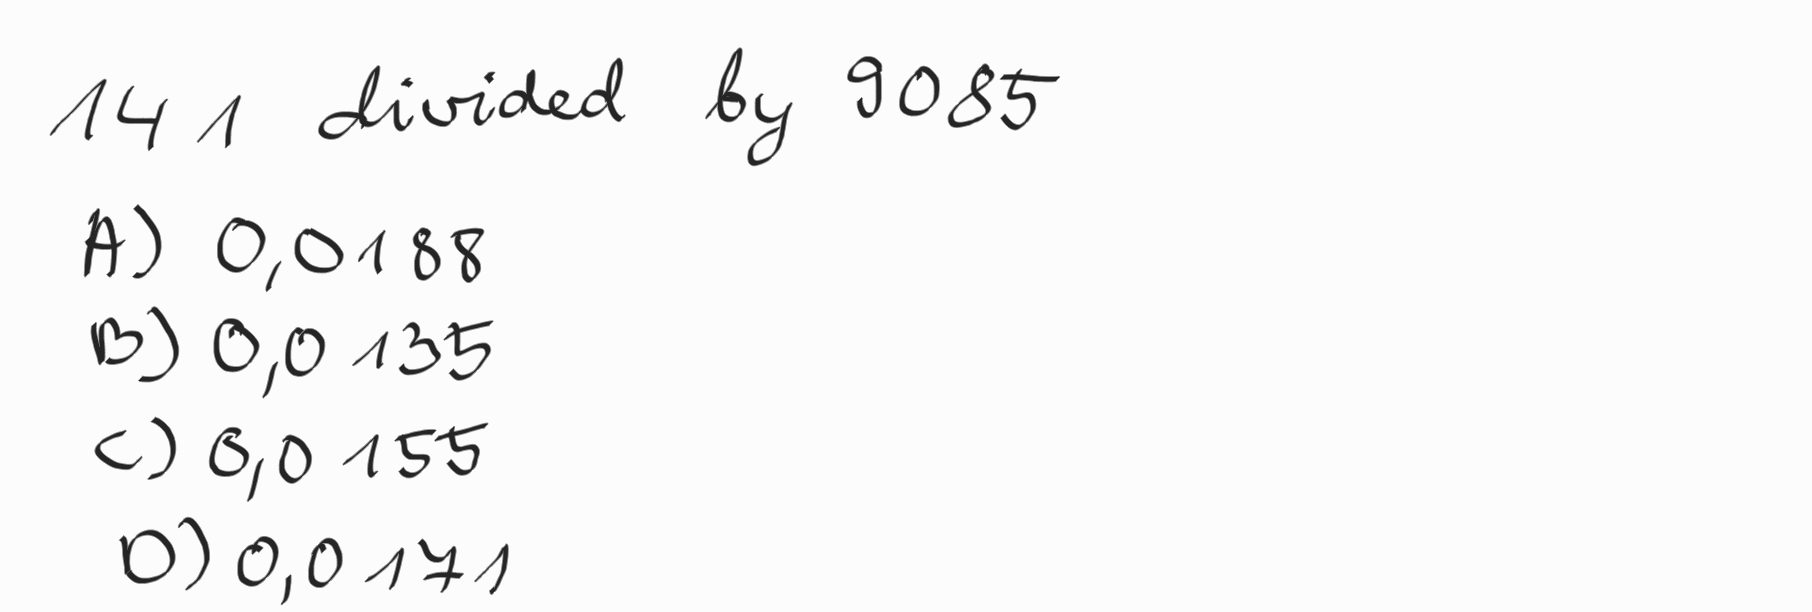 141 divided by 9085
A) 0,0188
B) 0,0135
C) 0,0155
D) 0,0171